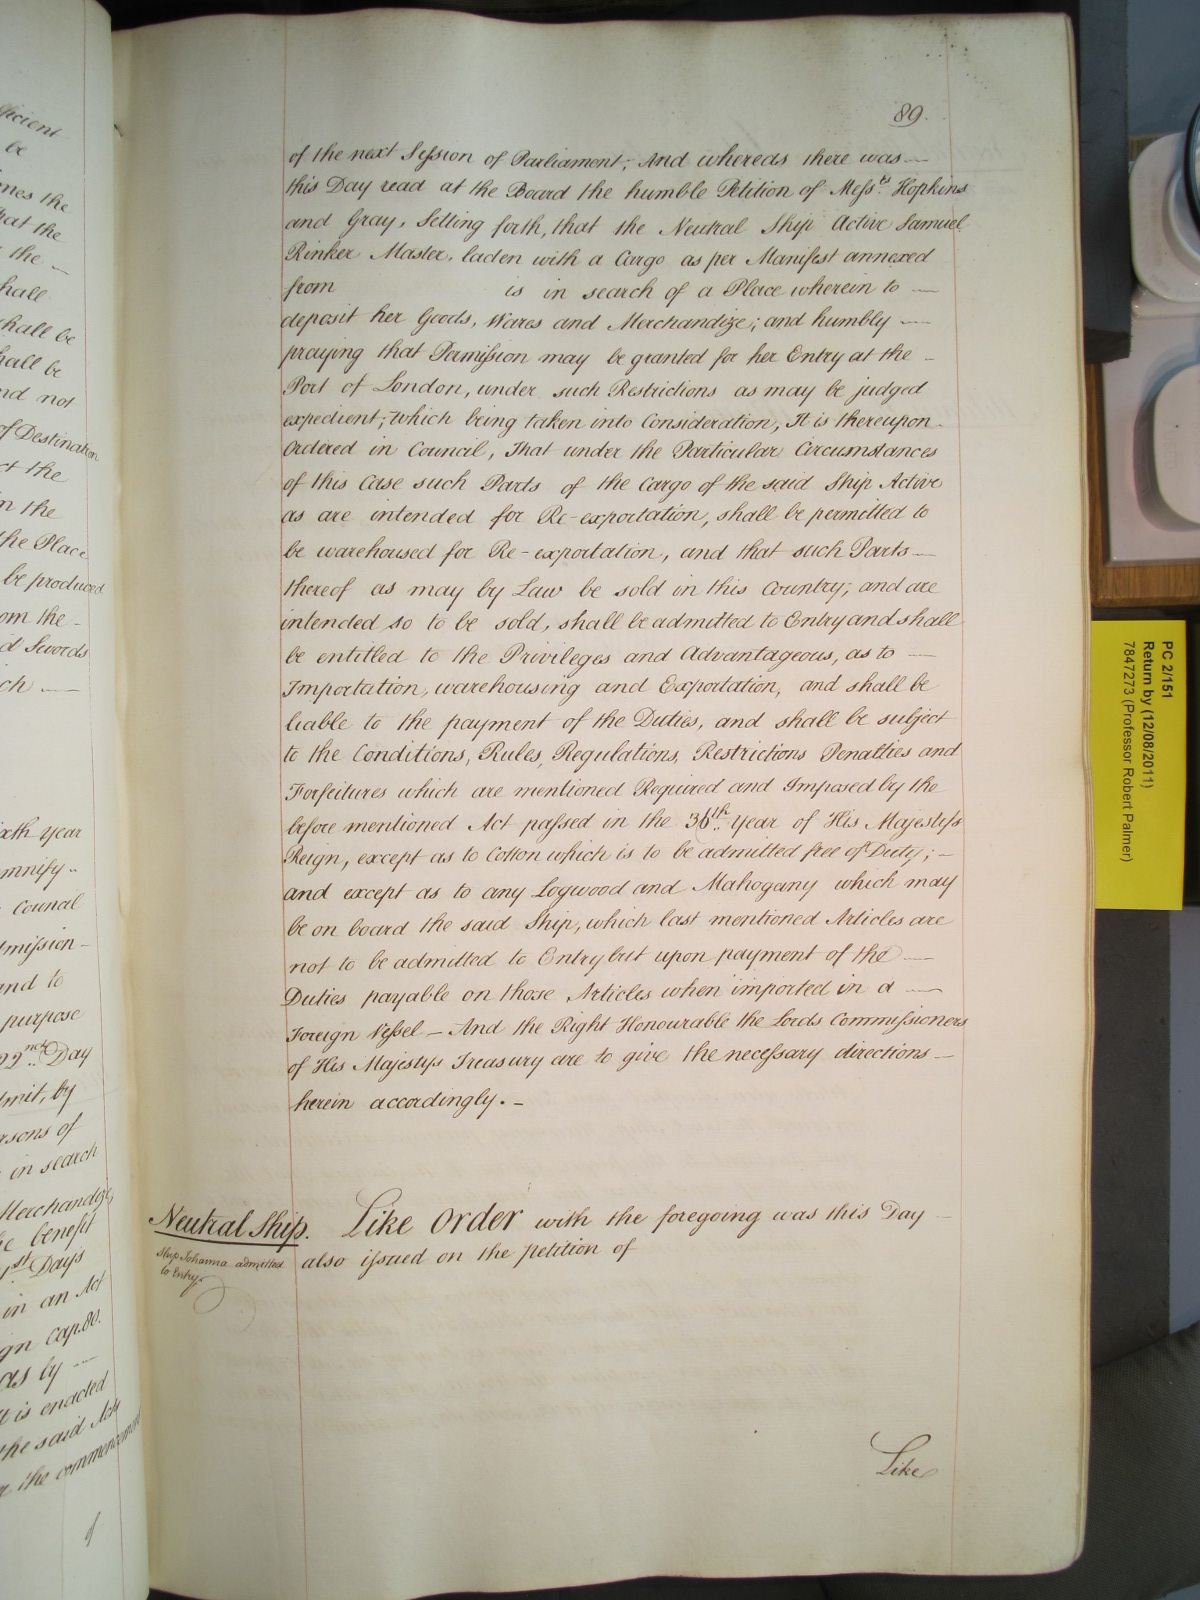 89.
of the next Session of Parliament; And whereas there was
this Day read at the Board the humble Petition of Mess.rs Hopkins
and Gray, Setting forth, that the Neutral Ship Active Samuel
Rinker Master, laden with a Cargo as per Manifest annexed
from is in search of a Place wherein to
deposit her Goods, Wares and Merchandize; and humbly
praying that Permission may be granted for her Entry at the
Port of London, under such Restrictions as may be judged
expedient; which being taken into Consideration, It is thereupon
Ordered in Council, That under the Particular Circumstances
of this Case such Parts of the Cargo of the said Ship Active
as are intended for Re-exportation, shall be permitted to
be warehoused for Re-exportation, and that such Parts
thereof as may by Law be sold in this Country; and are
intended so to be sold, shall be admitted to Entry and shall
be entitled to the Privileges and Advantageous, as to
Importation, warehousing and Exportation, and shall be
liable to the payment of the Duties, and shall be subject
to the Conditions, Rules, Regulations, Restrictions Penalties and
Forfeitures which are mentioned Required and Imposed by the
before mentioned Act passed in the 36th Year of His Majesty's
Reign, except as to Cotton which is to be admitted free of Duty;
and except as to any Logwood and Mahogany which may
be on board the said Ship, which last mentioned Articles are
not to be admitted to Entry but upon payment of the
Duties payable on those Articles when imported in a
Foreign Vessel — And the Right Honourable the Lords Commissioners
of His Majestys Treasury are to give the necessary directions
herein accordingly. –
Neutral Ship.
Ship Johanna admitted
to Entry.
Like Order with the foregoing was this Day
also issued on the petition of
Like
ficient
be
the
at the
the
hall
shall be
hall be
nd not
of Destination
the
in the
the Place
be produced
om the
Swords
ch
ixth Year
mnify
Council
mission
and to
purpose
22.nd Day
mit, by
rsons of
in search
Merchandize,
benefit
1st Days
in an Act
ign Cap. 80.
as by
is enacted
the said Act
the commencement
of
PC 2/151
Return by (12/08/2011)
7847273 (Professor Robert Palmer)